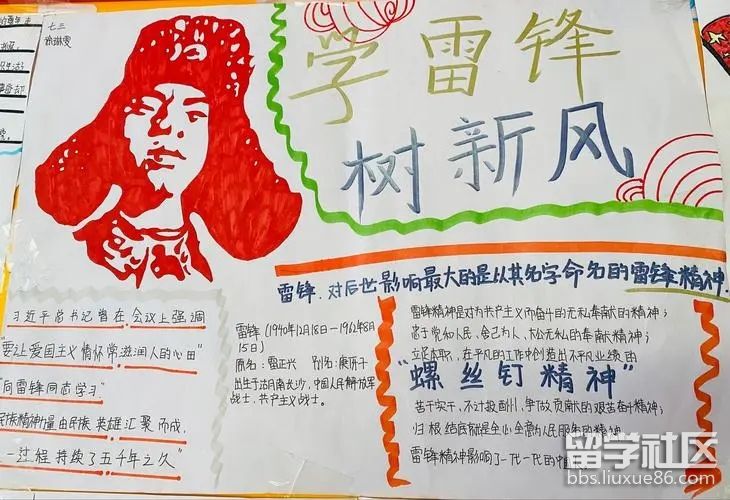 七三
学雷锋
树新风
雷锋,对后世影响最大的是以其名字命名的雷锋精神.
习近平总书记曾在会议上强调
"要让爱国主义情怀常滋润人的心田"
向雷锋同志学习"
民族精神力量由民族英雄汇聚而成,
一过程持续了五千年之久"
雷锋(1940年12月18日—1962年8月
15日)
原名:雷正兴 别名:庚伢子
出生于湖南长沙,中国人民解放军
战士,共产主义战士。
雷锋精神是对为共产主义而奋斗的无私奉献的精神;
忠于党和人民、舍己为人、大公无私的奉献精神;
立足本职、在平凡的工作中创造出不平凡业绩的
"螺丝钉精神"
苦干实干、不计报酬、争做贡献的艰苦奋斗精神;
归根结底就是全心全意为人民服务的精神
雷锋精神影响了一代一代的中国
留学社区
bbs.liuxue86.com